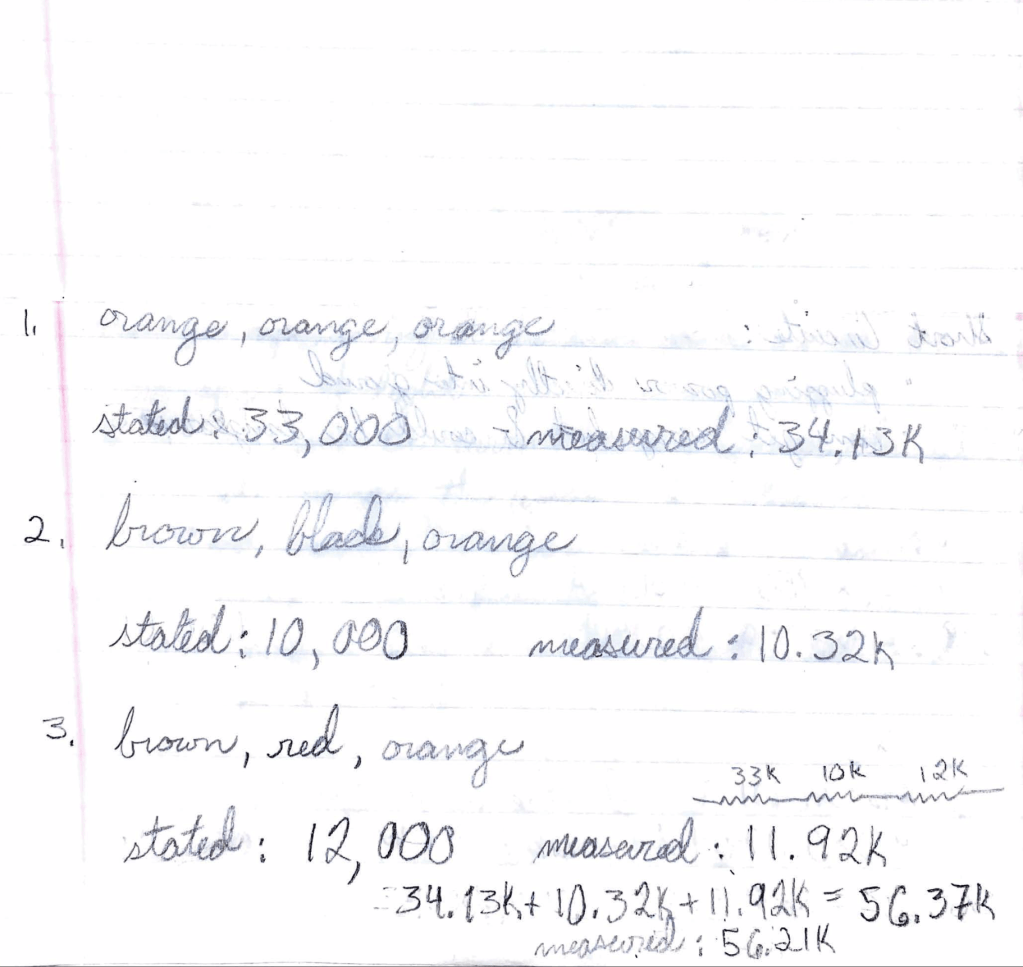 1. orange, orange, orange
stated: 33,000 - measured: 34.13K
2. brown, black, orange
stated: 10,000 measured: 10.32K
3. brown, red, orange
33K 10K 12K
stated: 12,000 measured: 11.92K
34.13K + 10.32K + 11.92K = 56.37K
measured: 56.21K